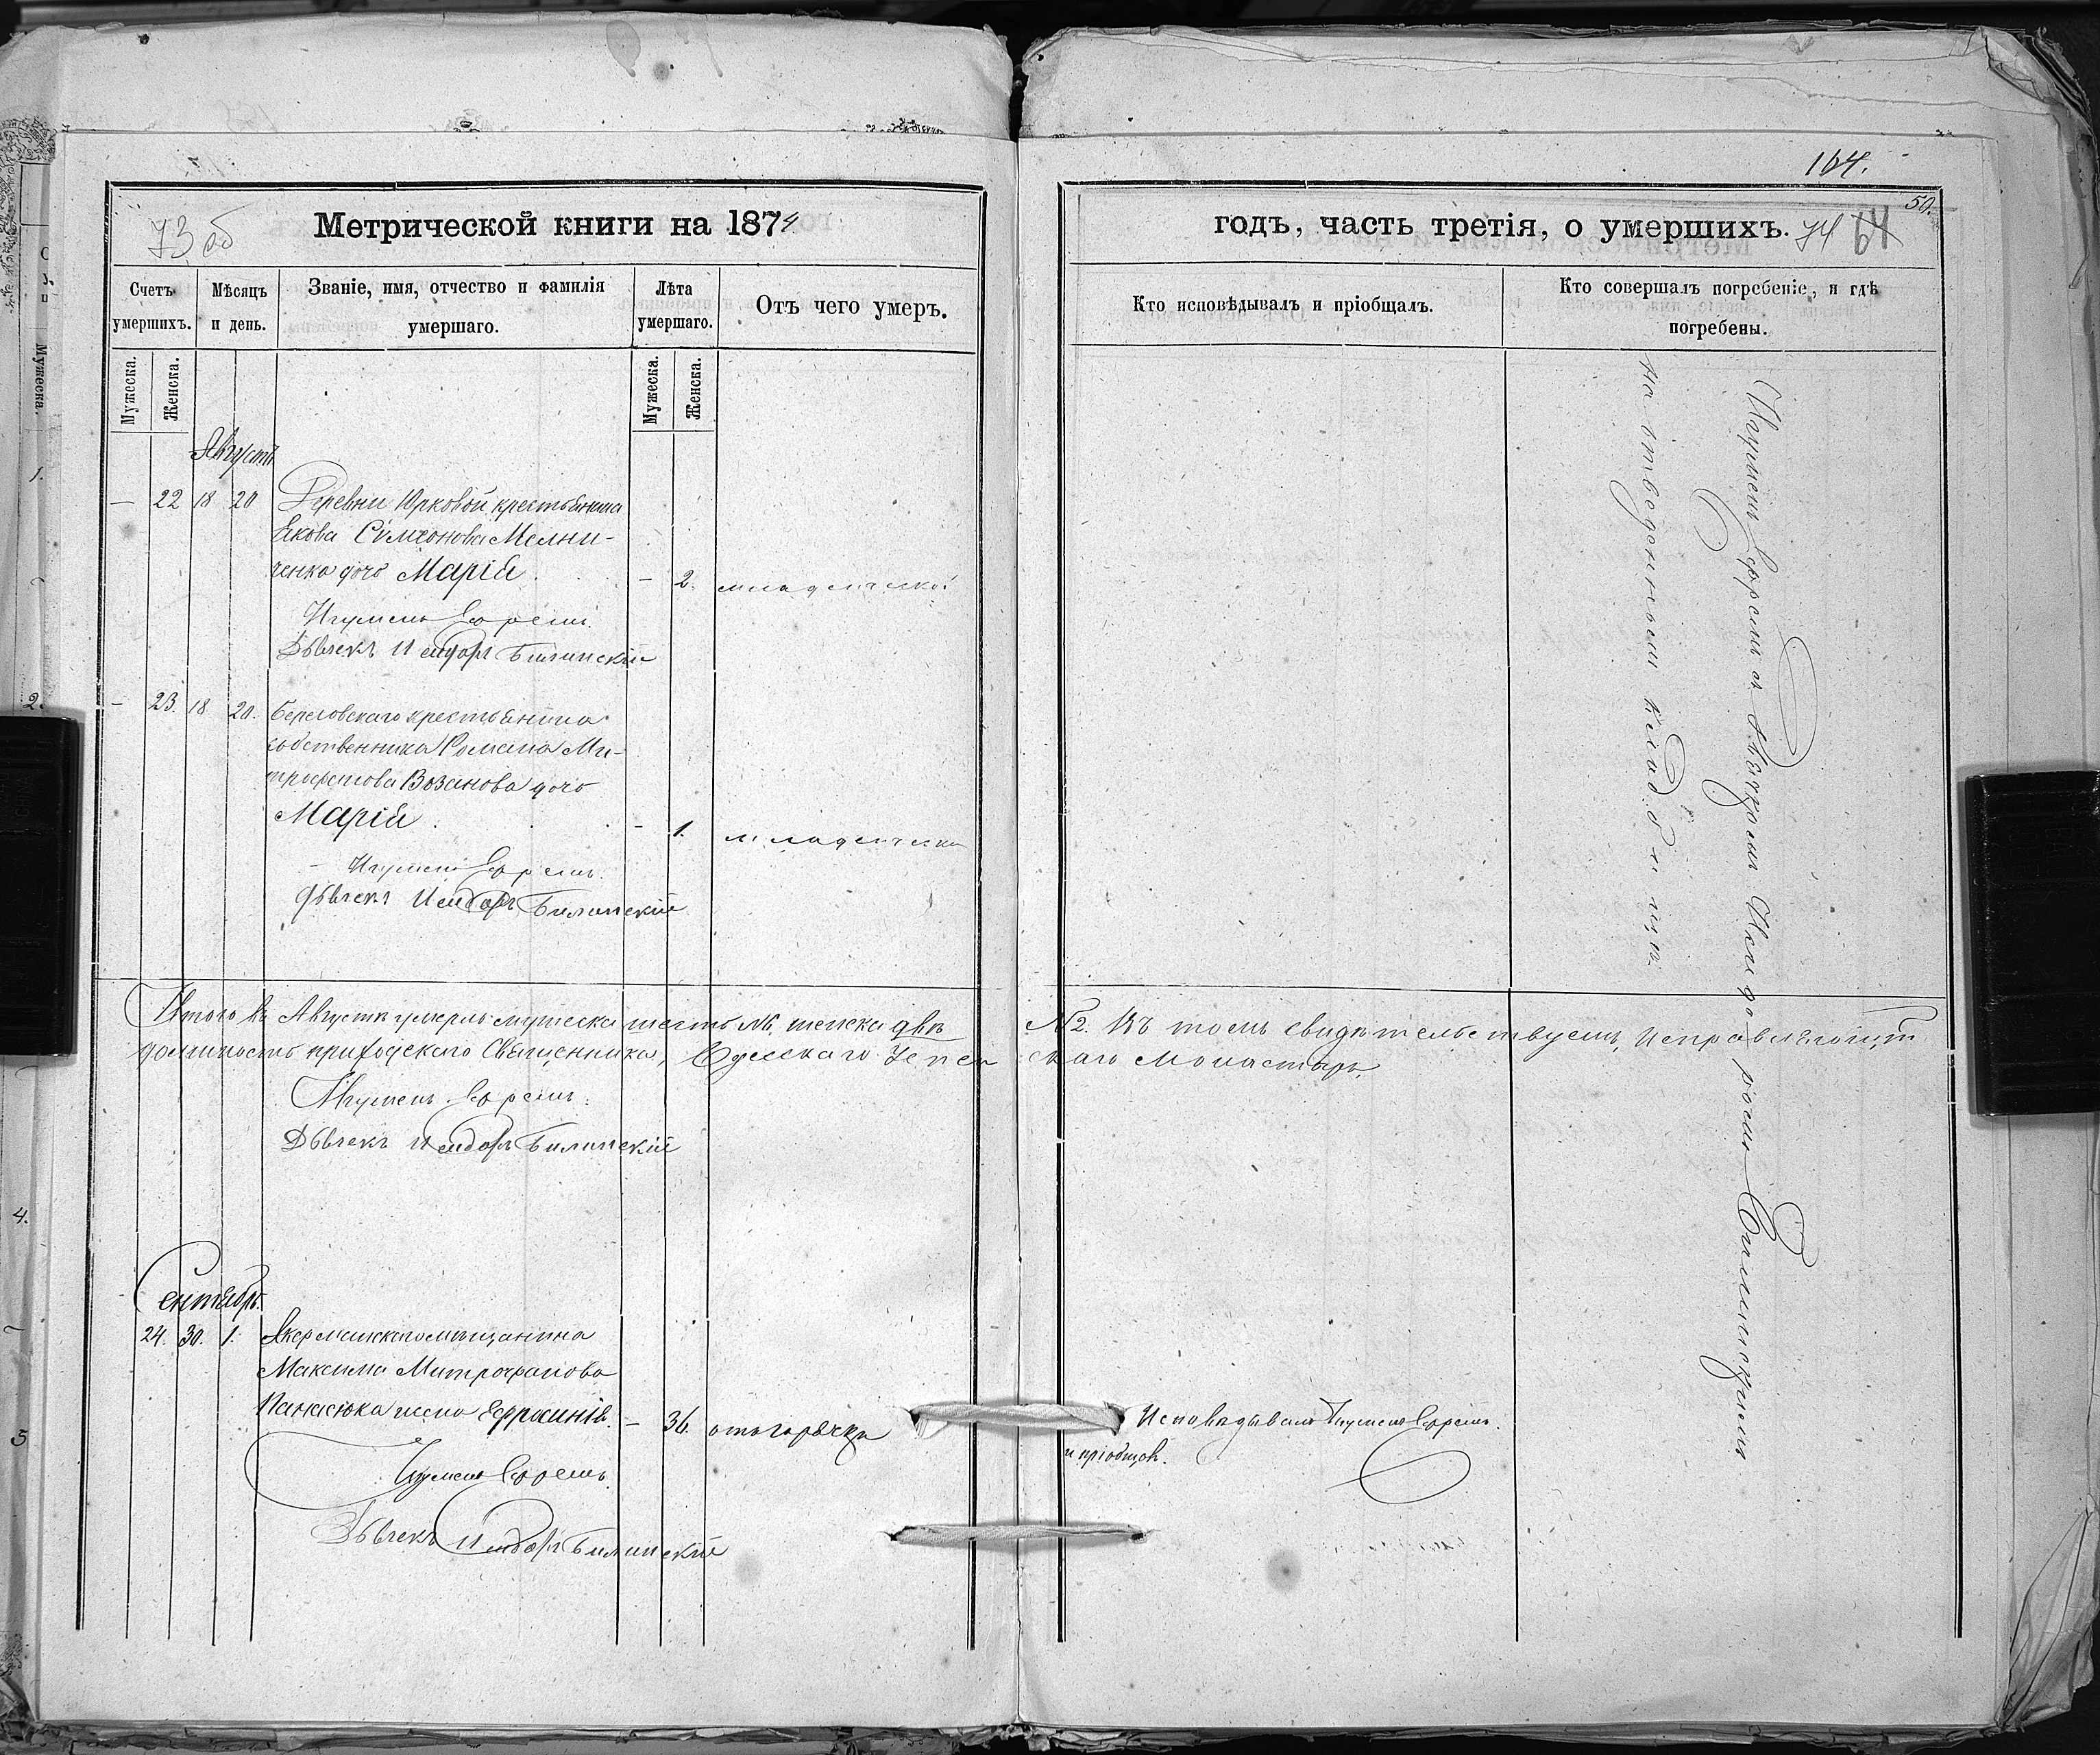 73 об
Метрической книги на 1874
Счетъ умершихъ.
Мѣсяцъ и день.
Званіе, имя, отчество и фамилія умершаго.
Лѣта умершаго.
Отъ чего умеръ.
Мужеска.
Женска.
Мужеска.
Женска.
Августъ
— 22 18 20 Деревни Юрковой крестьянина
Якова Сѵмеонова Мельни-
ченка дочь Марія. — 2. младенческой
Игуменъ Ефремъ.
Дьячекъ Исидоръ Билинскій
— 23. 18 20. Береговскаго крестьянина
собственника Романа Ми-
трофанова Возанова дочь
Марія. — 1. младенческ
Игуменъ Ефремъ.
Дьячекъ Исидоръ Билинскій
Итого въ Августѣ умерло мужеска шесть №6, женска двѣ
должность приходскаго Священника, Одесскаго Успен
Игуменъ Ефремъ.
Дьячекъ Исидоръ Билинскій
Сентябрь.
24. 30. 1. Акерманскаго мѣщанина
Максима Митрофанова
Панасюка жена Ефросинія. — 36. отъ горячки
Игуменъ Ефремъ.
Дьячекъ Исидоръ Билинскій
164.
50.
годъ, часть третія, о умершихъ. 74 64
Кто исповѣдывалъ и пріобщалъ.
Кто совершалъ погребеніе, и гдѣ погребены.
Игуменъ Ефремъ съ дьячкомъ Исидоромъ Билинскимъ
на отведенномъ кладбищѣ.
№2. Въ томъ свидѣтельствуемъ, исправляющій
скаго монастыря,
Исповѣдывалъ Игуменъ Ефремъ.
и пріобщ.
Мужеска.
1.
2.
4.
5